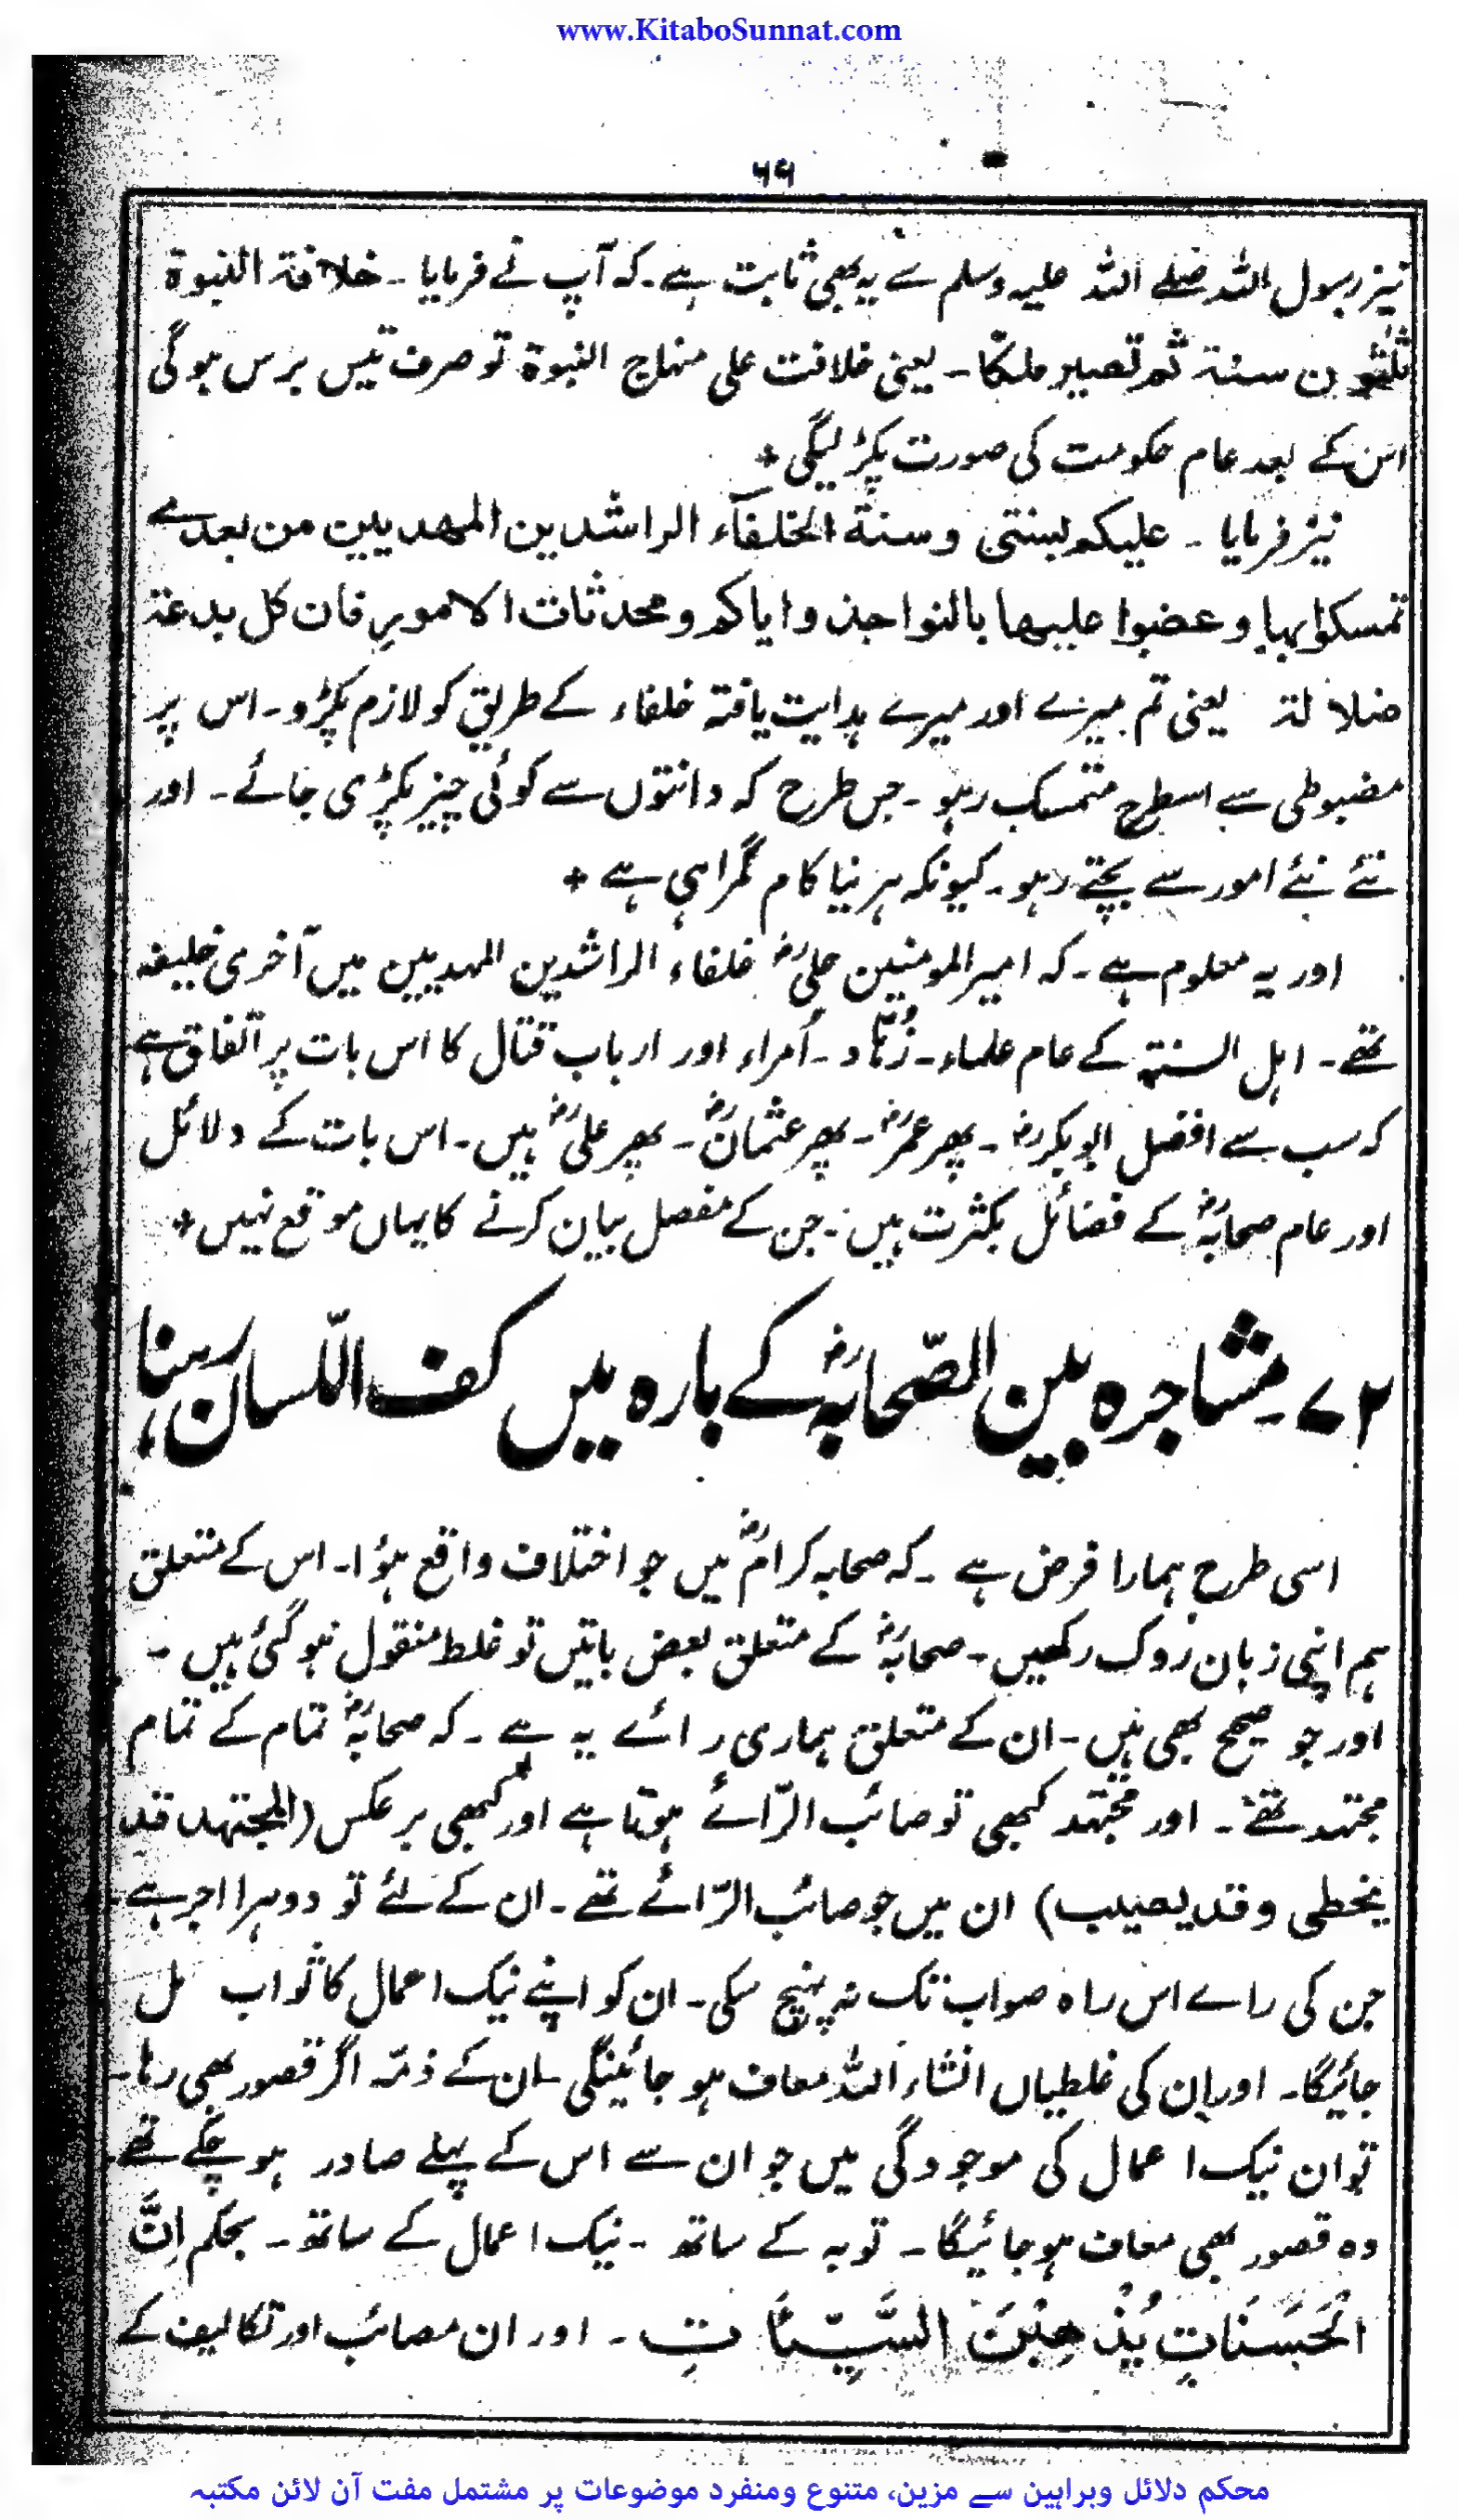 www.KitaboSunnat.com
۶۶
نیز رسول اللہ صلے اللہ علیہ وسلم سے یہ بھی ثابت ہے۔ کہ آپ نے فرمایا ۔ خلافۃ النبوۃ
ثلثون سنۃ ثم تصیر ملکا۔ یعنی خلافت علی منہاج النبوۃ تو صرف تیس برس ہوگی
اس کے بعد عام حکومت کی صورت پکڑ لیگی +
نیز فرمایا ۔ علیکم بسنتی وسنۃ الخلفآء الراشدین المھدیین من بعدے
تمسکوا بہا وعضوا علیھا بالنواجذ وایاکم ومحدثات الامور فان کل بدعۃ
ضلالۃ یعنی تم میرے اور میرے ہدایت یافتہ خلفاء کے طریق کو لازم پکڑو۔ اس پر
مضبوطی سے اسطرح متمسک رہو ۔ جس طرح کہ دانتوں سے کوئی چیز پکڑی جائے۔ اور
نئے نئے امور سے بچتے رہو۔ کیونکہ ہر نیا کام گمراہی ہے +
اور یہ معلوم ہے۔ کہ امیر المومنین علیؓ خلفاء الراشدین المہدیین میں آخری خلیفہ
تھے۔ اہل السنتہ کے عام علماء۔ زُہّاد ۔ اُمراء اور ارباب قتال کا اس بات پر اتفاق ہے
کہ سب سے افضل ابوبکرؓ ۔ پھر عمرؓ۔ پھر عثمانؓ۔ پھر علیؓ ہیں۔ اس بات کے دلائل
اور عام صحابہؓ کے فضائل بکثرت ہیں۔ جن کے مفصل بیان کرنے کا یہاں موقع نہیں +
۷۲۔ مشاجرہ بین الصّحابہؓ کے بارہ میں کف اللّسان رہنا
اسی طرح ہمارا فرض ہے ۔ کہ صحابہ کرامؓ میں جو اختلاف واقع ہؤا۔ اس کے متعلق
ہم اپنی زبان روک رکھیں ۔ صحابہؓ کے متعلق بعض باتیں تو غلط منقول ہو گئی ہیں ۔
اور جو صحیح بھی ہیں۔ ان کے متعلق ہماری رائے یہ ہے ۔ کہ صحابہؓ تمام کے تمام
مجتہد تھے ۔ اور مجتہد کبھی تو صائب الرّائے ہوتا ہے اور کبھی برعکس (المجتھد قد
یخطی وقد یصیب) ان میں جو صائب الرّائے تھے ۔ ان کے لئے تو دوہرا اجر ہے
جن کی راے اس راہ صواب تک نہ پہنچ سکی۔ ان کو اپنے نیک اعمال کا ثواب مل
جائیگا۔ اور ان کی غلطیاں انشاء اللہ معاف ہو جائینگی ۔ ان کے ذمّہ اگر قصور بھی رہا۔
تو ان نیک اعمال کی موجودگی میں جو ان سے اس کے پہلے صادر ہو چکے تھے
وہ قصور بھی معاف ہو جائیگا۔ توبہ کے ساتھ ۔ نیک اعمال کے ساتھ ۔ بحکم اِنَّ
الْحَسَنَاتِ یُذْھِبْنَ السَّیِّئَاتِ ۔ اور ان مصائب اور تکالیف کے
محکم دلائل وبراہین سے مزین، متنوع ومنفرد موضوعات پر مشتمل مفت آن لائن مکتبہ